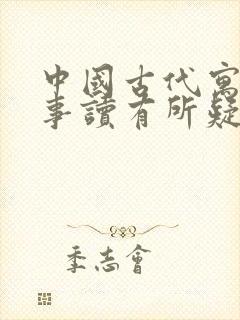 中國古代寓
事讀有所疑
季志會